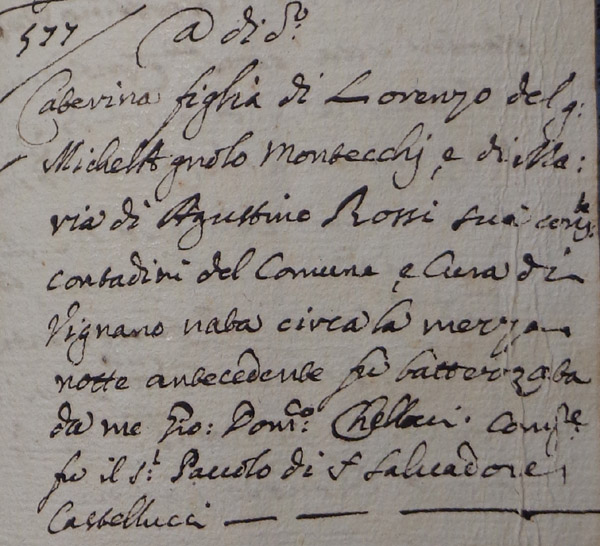 577 A di d.o
Caterina figlia di Lorenzo del q:
MichelAgnolo Montecchj, e di Ma:
ria di Agustino Rossi sua
contadini del Comune, e Cura di
Vignano nata circa la mezza
notte antecedente fù battezzata
da me Gio: Dom:co Chellucci. Comp.e
fu il S.r Paolo di S Salvadore
Castellucci